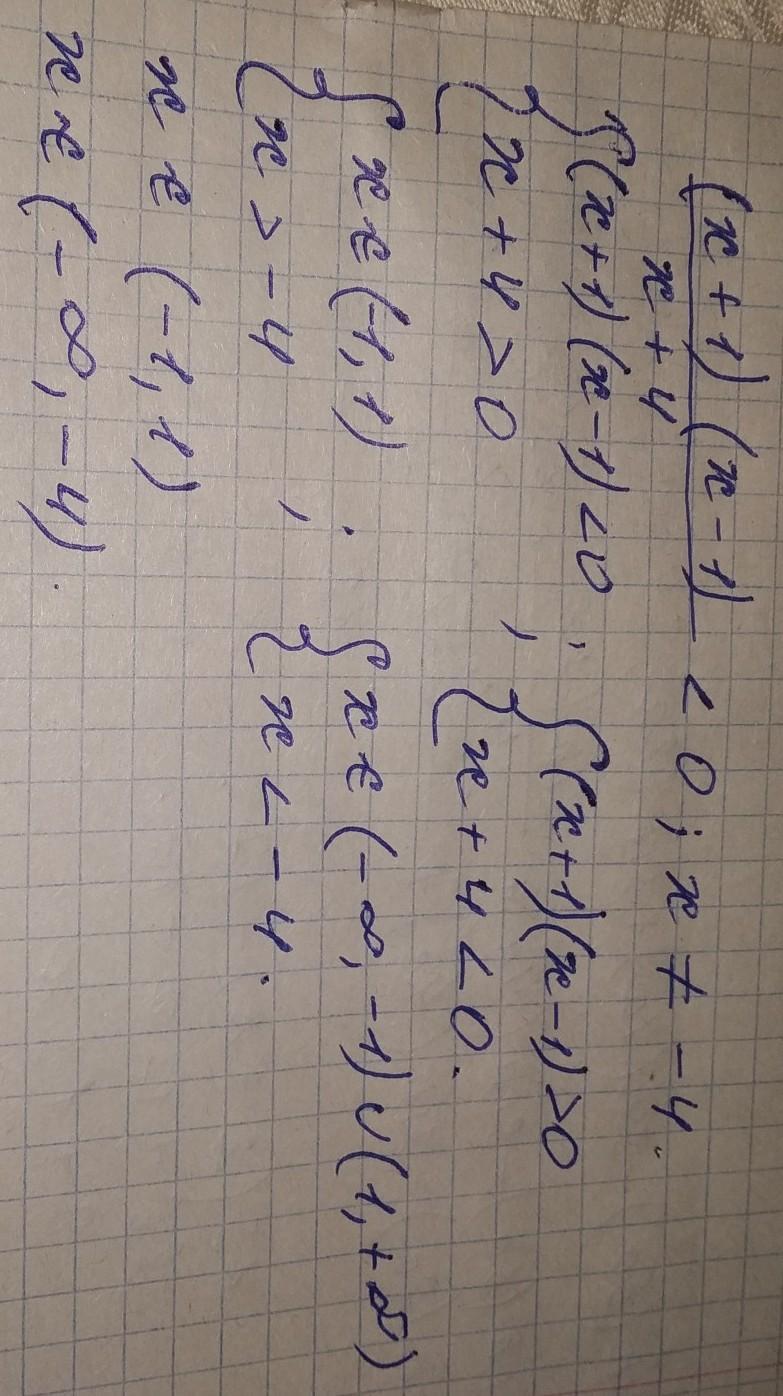 (x+1)(x-1)
x+4 < 0; x ≠ -4.
{ (x+1)(x-1)<0 ; { (x+1)(x-1)>0
{ x+4>0 , { x+4<0.
{ x ∈ (-1,1) ; { x ∈ (-∞,-1)∪(1,+∞)
{ x>-4 , { x<-4.
x ∈ (-1,1)
x ∈ (-∞,-4).